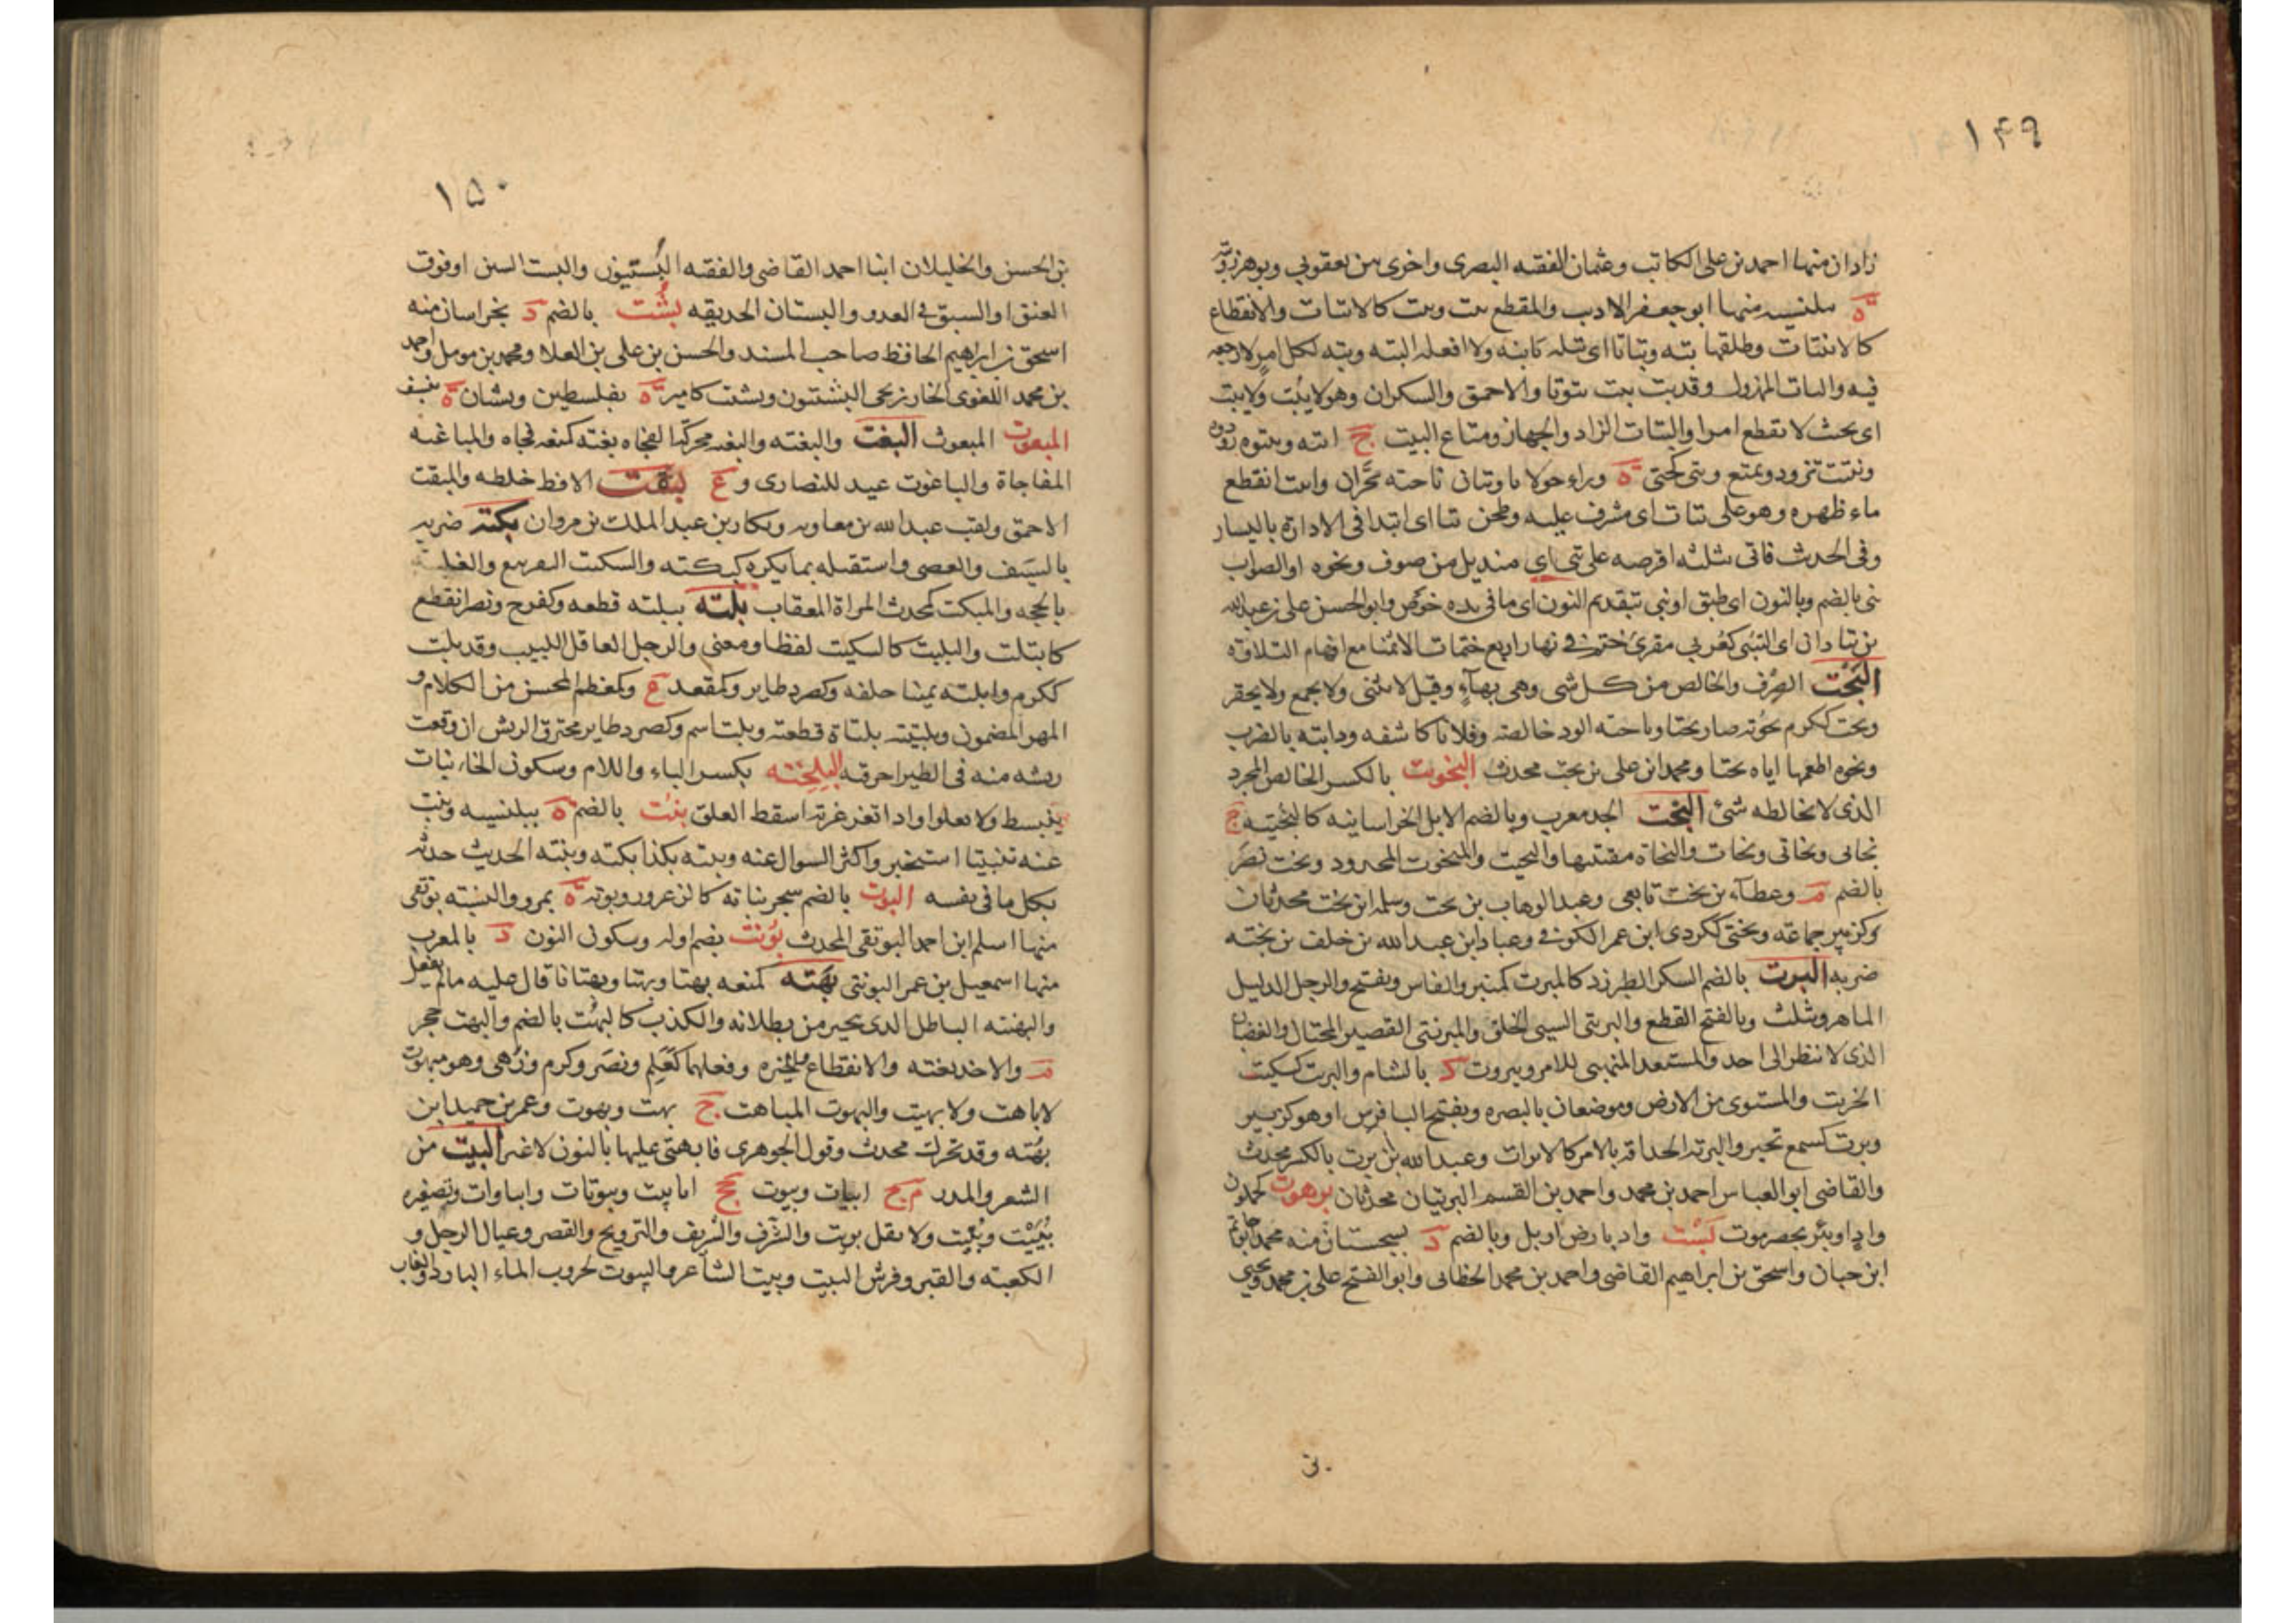 ١٤٩
زاذان منها احمد بن علي الكاتب وعثمان الفقيه البصري واخرى بين بعقوبي وبوهرز
ة ببلنسيه منها ابو جعفر الاديب والمقطع بت وبت كالابتات والانقطاع
كالانبتات وطلقها بته وبتاتا اي بتله بائنه ولا افعله البته وبته لكل امر لا رجعه
فيه والبات المهزول وقد بت يبت بتوتا والاحمق والسكران وهو لا يبت ولا يبت
اي بحيث لا يقطع امرا والبتات الزاد والجهاز ومتاع البيت ج ابته وبتتوه زودوه
وتبتت تزود وتمتع وبتى كحتى ة وراء حولايا وبتان ناحيه بحران وانبت انقطع
ماء ظهره وهو على بتات اي مشرف عليه وطحن بتا اي ابتدا في الاداره باليسار
وفي الحديث فاتي بثلثه اقرصه على بتي اي منديل من صوف ونحوه او الصواب
بني بالضم وبالنون اي طبق او نبي بتقديم النون اي مائده من خوص وابو الحسن علي بن عبد الله
بن بتا ذان اي البتي كعربي مقرئ ختم في نهار اربع ختمات الا ثمنا مع افهام التلاوه
البحت الصرف والخالص من كل شي وهي بهاء وقيل لا يثنى ولا يجمع ولا يحقر
وبحت ككرم بحوته صار بحتا وباحته الود خالصه وفلانا كاشفه ودابته بالضرب
ونحوه اطعمها اياه بحتا ومحمد ابن علي بن بحت محدث البحوت بالكسر الخالص المجرد
الذي لا يخالطه شئ البخت الجد معرب وبالضم الابل الخراسانيه كالبختيه ج
بخاتي وبخاتى وبخات والبخاة مقتنيها والبخيت والمبخوت المجدود وبخت نصر
بالضم م وعطاء بن بخت تابعي وعبد الوهاب بن بخت وسلمه ابن بخت محدثان
وكزبير جماعه وبختي ككردي ابن عمر الكوفي وعباد ابن عبد الله بن خلف بن بخته
ضربه البرت بالضم السكر الطبرزد كالمبرت كمنبر والفاس ويفتح والرجل الدليل
الماهر ويثلث وبالفتح القطع والبرنتي السيي الخلق والمبرنتي القصير المختال والغضبان
الذي لا ينظر الى احد والمستعد المتهيئ للامر وبيروت د بالشام والبريت كسكيت
الخريت والمستوى من الارض وموضعان بالبصره وبفتح البا فرس او هو كزبير
وبرت كسمع تحير والبرته الحذاقه بالامر كالابرات وعبد الله بن برت بالكسر محدث
والقاضي ابو العباس احمد بن محمد واحمد بن القسم البرتيان محدثان برهوت كحلزون
واد او بئر بحضرموت بست واد بارض اربل وبالضم د بسجستان منه محمد ابو حاتم
ابن حبان واسحق بن ابراهيم القاضي واحمد بن محمد الخطابي وابو الفتح علي بن محمد ويحيى
ن.
١٥٠
بن الحسن والخليلان ابنا احمد القاضي والفقيه البستيون والبست السير او فوق
العنق او السبق في العدو والبستان الحديقه بشت بالضم د بخراسان منه
اسحق بن ابراهيم الحافظ صاحب المسند والحسن بن علي بن العلا ومحمد بن مومل واحمد
بن محمد اللغوي الخارزنجي البشتيون وبشيت كامير ة بفلسطين وبشتان ة بنسف
المبعوت المبعوث البغت والبغته والبغته محركتا الفجاه بغته كمنعه فجاه والمباغته
المفاجاة والباغوت عيد للنصارى وع بقت الاقط خلطه والمبقت
الاحمق ولقب عبد الله بن معاويه وبكار بن عبد الملك بن مروان بكته ضربه
بالسيف والعصى واستقبله بما يكره كبكته والتبكيت التقريع والغلبه
بالحجه والمبكت كمحدث المراة المعقاب بلته يبلته قطعه وكفرح ونصر انقطع
كابتلت والبليت كالسكيت لفظا ومعنى والرجل العاقل اللبيب وقد بلت
ككرم وابلته يمينا حلفه وكصرد طاير وكمقعد ع وكمعظم المحسن من الكلام و
المهر المضمون وبلتيته بلتاة قطعته وبلت اسم وكصرد طاير محترق الريش ان وقعت
ريشه منه في الطير احرقه البلختة بكسر الباء واللام وسكون الخاء نبات
ينبسط ولا يعلو واذا تغرغر به اسقط العلق بنت بالضم ة ببلنسيه وبنت
عنه تبنيتا استخبر واكثر السوال عنه وبنته بكذا بكته وبنته الحديث حدثه
بكل ما في نفسه البوت بالضم شجر نباته كالزعرور وبوته ة بمرو والنسبه بوتقي
منها اسلم ابن احمد البوتقي المحدث بونت بضم اوله وسكون النون د بالمغرب
منها اسمعيل بن عمر البونتي بهته كمنعه بهتا وبهتا وبهتانا قال عليه مالم يفعل
والبهيته الباطل الذي يتحير من بطلانه والكذب كالبهت بالضم والبهت حجر
م والاخذ بغته والانقطاع والحيره وفعلهما كعلم ونصر وكرم وزهى وهو مبهوت
لا باهت ولا بهيت والبهوت المباهت ج بهت وبهوت وعمر بن حميد ابن
بهته وقد تحرك محدث وقول الجوهري فابهتي عليها بالنون لا غير البيت من
الشعر والمدر م ج ابيات وبيوت جج اباييت وبيوتات وابياوات وتصغيره
بييت وبييت ولا يقل بويت والشرف والشريف والتزويج والقصر وعيال الرجل و
الكعبه والقبر وفرش البيت وبيت الشاعر والبيوت كخروب الماء البارد والغاب